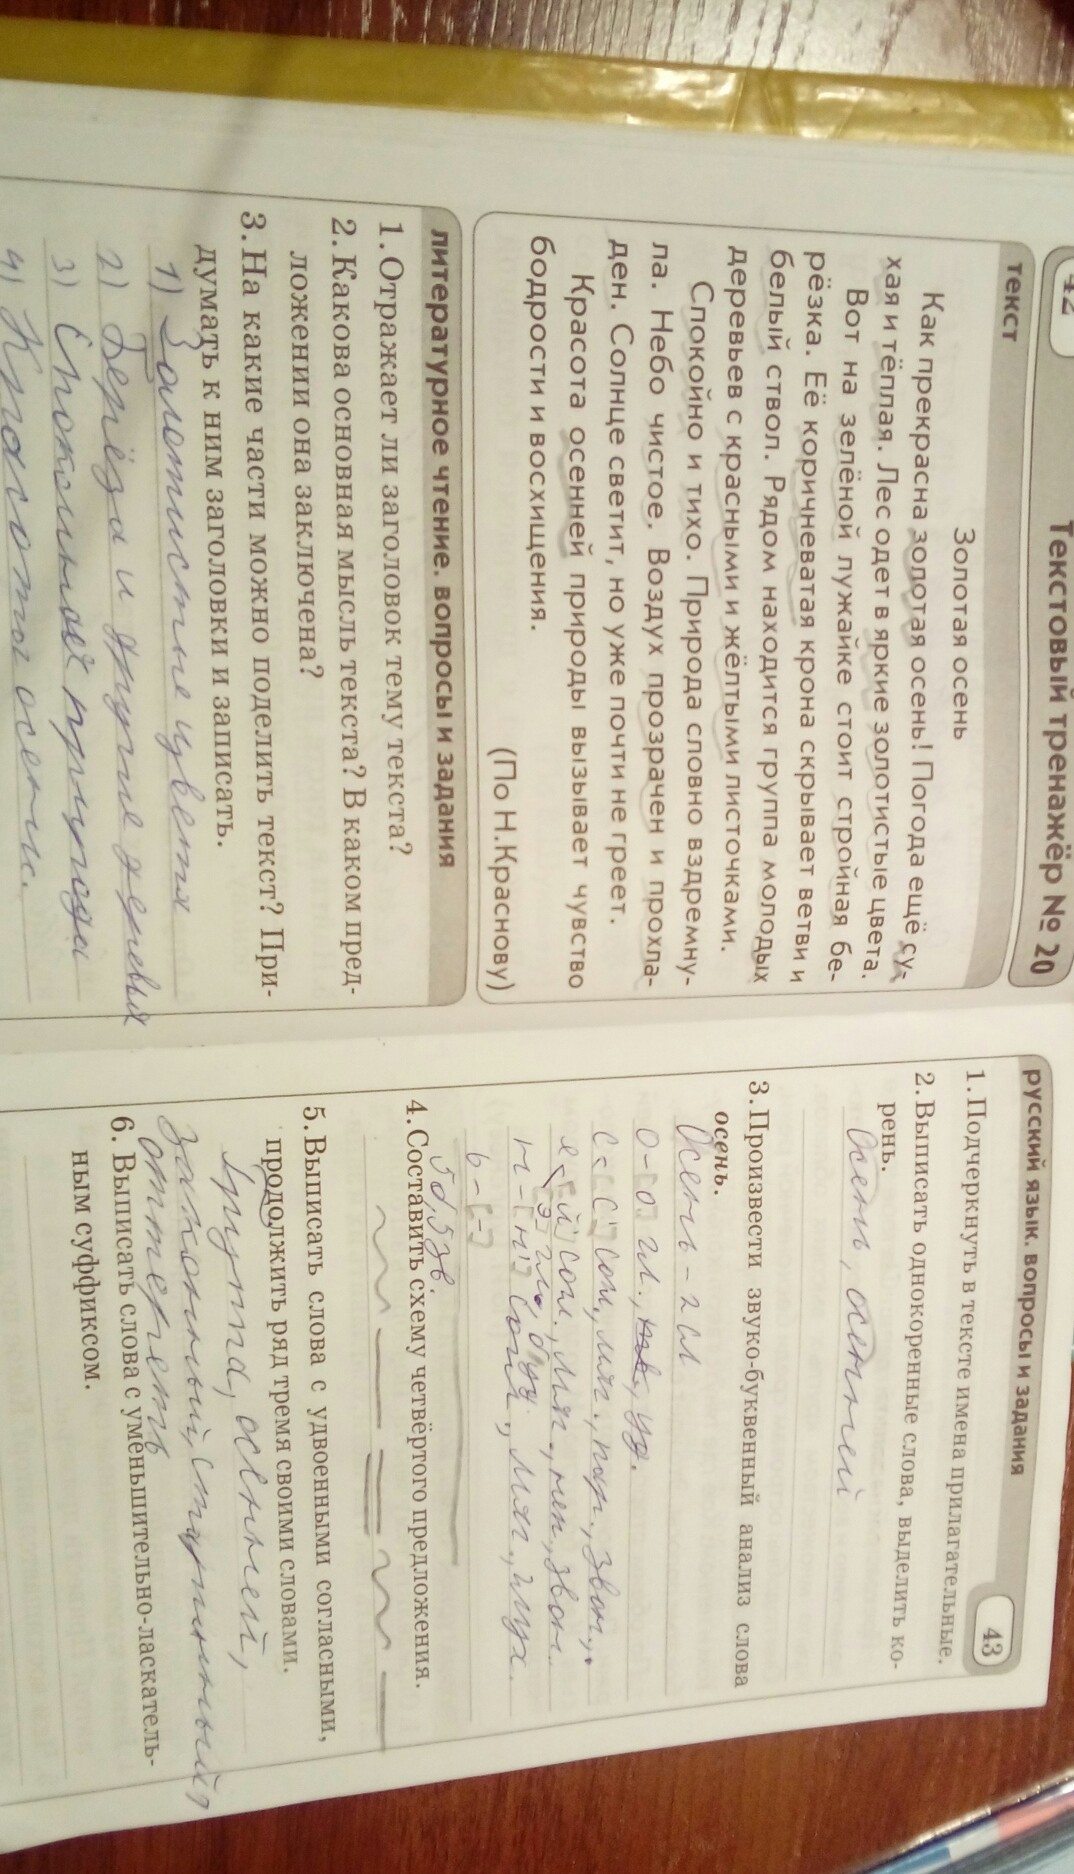 42
Текстовый тренажёр № 20
текст
Золотая осень
Как прекрасна золотая осень! Погода ещё су-
хая и тёплая. Лес одет в яркие золотистые цвета.
Вот на зелёной лужайке стоит стройная бе-
рёзка. Её коричневатая крона скрывает ветви и
белый ствол. Рядом находится группа молодых
деревьев с красными и жёлтыми листочками.
Спокойно и тихо. Природа словно вздремну-
ла. Небо чистое. Воздух прозрачен и прохла-
ден. Солнце светит, но уже почти не греет.
Красота осенней природы вызывает чувство
бодрости и восхищения.
(По Н.Краснову)
литературное чтение. вопросы и задания
1. Отражает ли заголовок тему текста?
2. Какова основная мысль текста? В каком пред-
ложении она заключена?
3. На какие части можно поделить текст? При-
думать к ним заголовки и записать.
1) Золотистые цвета
2) Берёза и другие деревья
3) природы
4) Красота осени.
русский язык. вопросы и задания
43
1. Подчеркнуть в тексте имена прилагательные.
2. Выписать однокоренные слова, выделить ко-
рень.
Осень, осенней
3. Произвести звуко-буквенный анализ слова
осень.
Осень - 2 сл
о - [о] гл., уд.
с - [с'] сог., мяг., пар.,
е [й'] сог., мяг., неп., звон.
[э] гл.,
н - [н'] сог., мяг.,
ь - [-]
5б, 5зв.
4. Составить схему четвёртого предложения.
5. Выписать слова с удвоенными согласными,
продолжить ряд тремя своими словами.
Группа, осенней,
законный, старинный,
оттереть
6. Выписать слова с уменьшительно-ласкатель-
ным суффиксом.